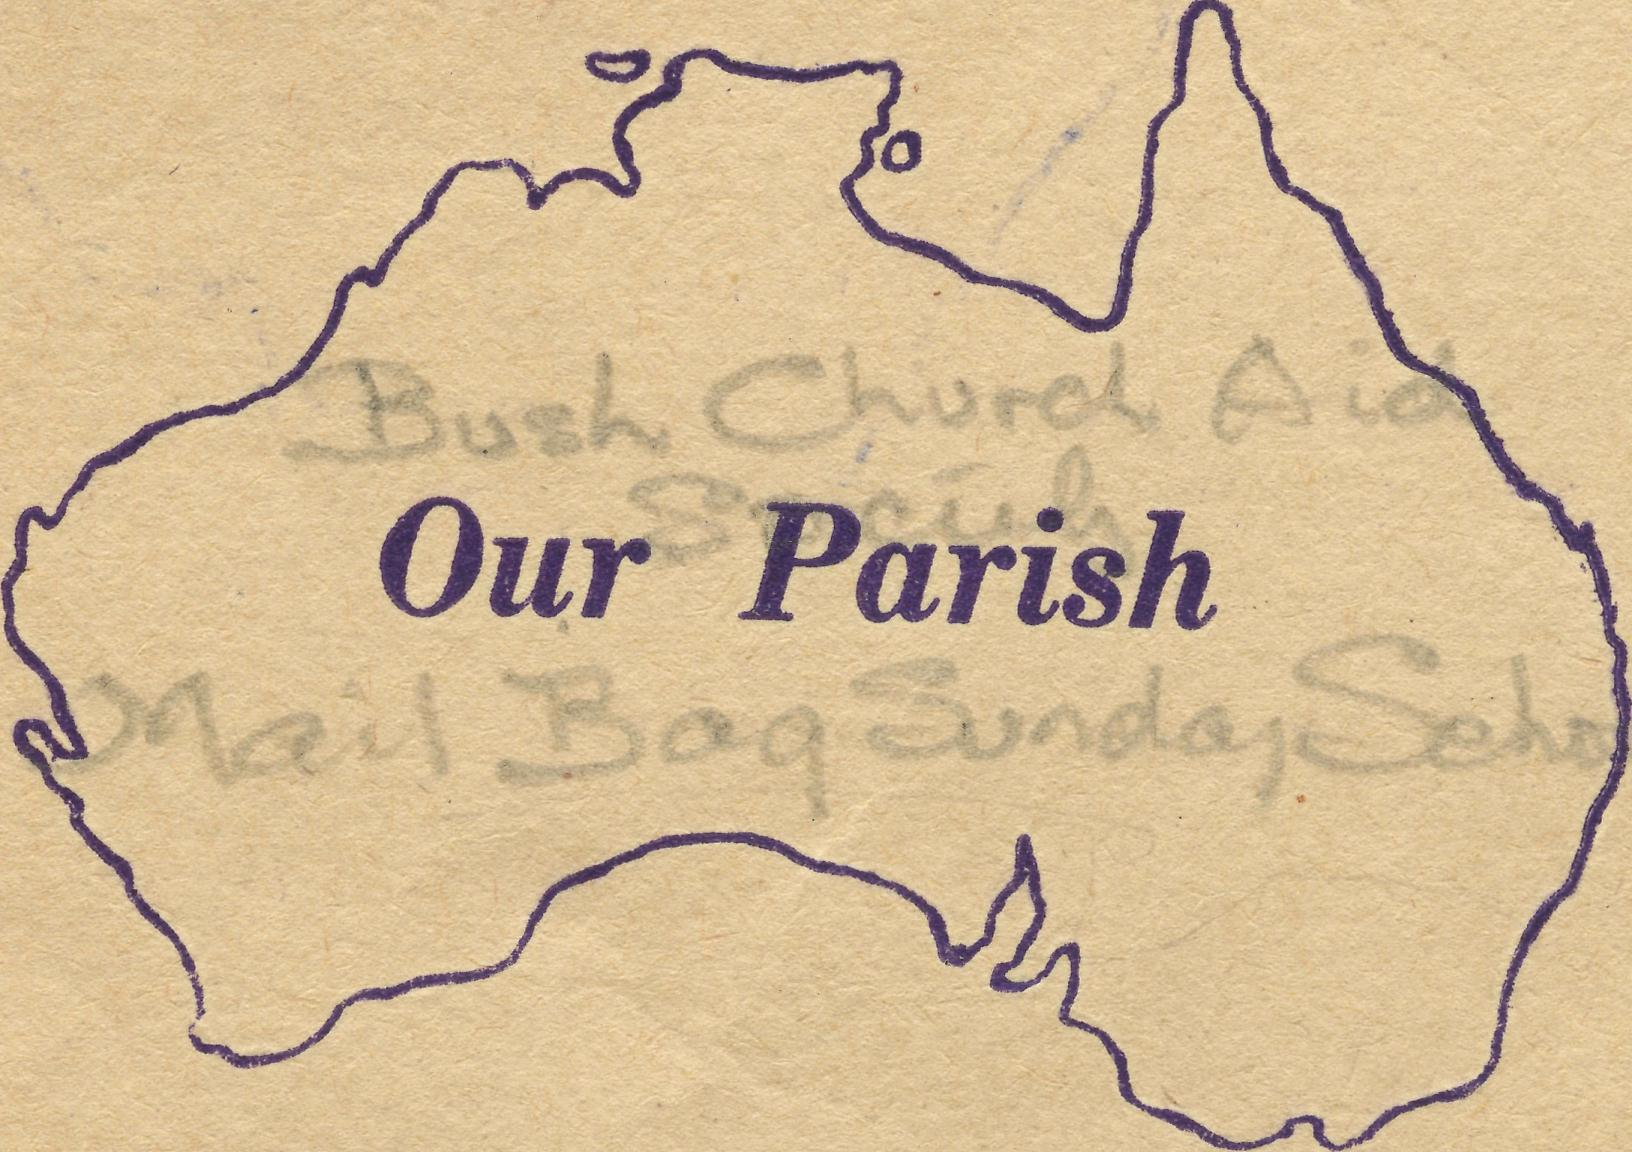 Bush Church Aid
Society
Our Parish
Mail Bag Sunday Scho